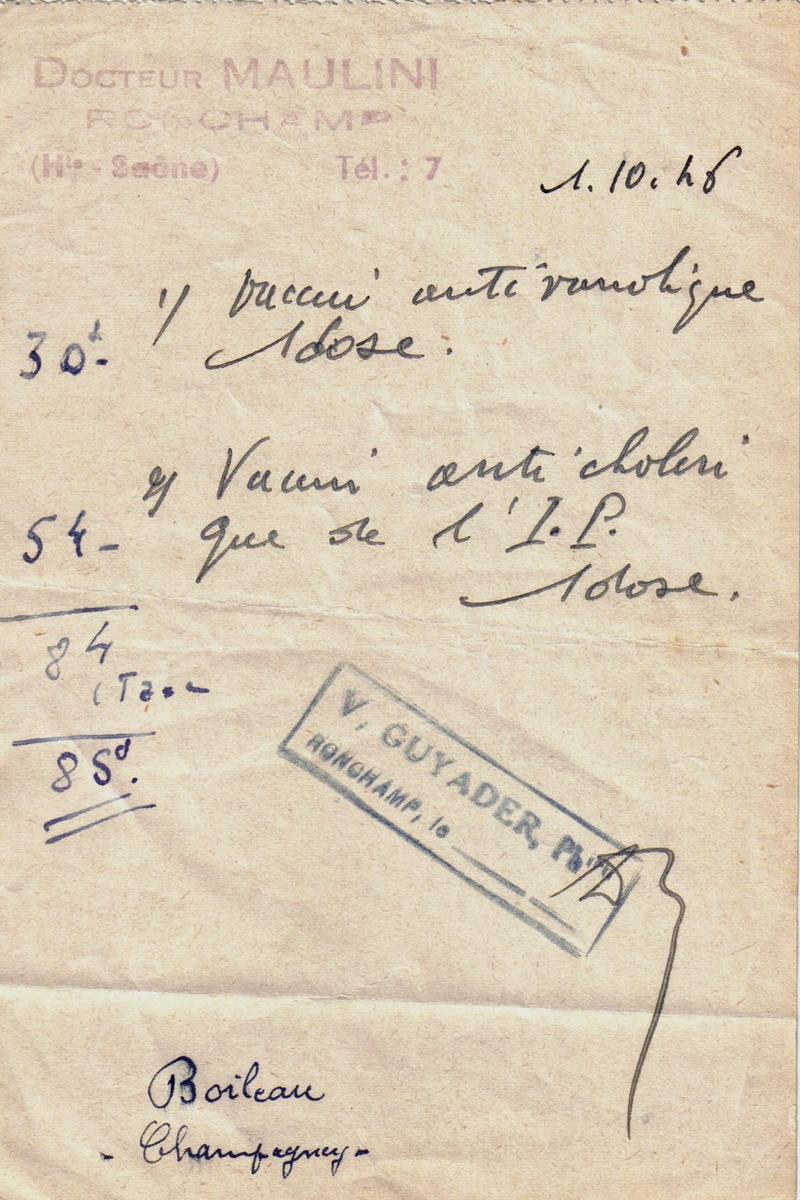 DOCTEUR MAULINI
RONCHAMP
(Hte - Saône) Tél. : 7
1.10.46
1/ Vaccin antivariolique
30f-
1 dose.
2/ Vaccin anticholéri
54- que de l'I.P.
1 dose.
84
1 Taxe
V. GUYADER, Phien
RONCHAMP, le
85
Boileau
- Champagney -